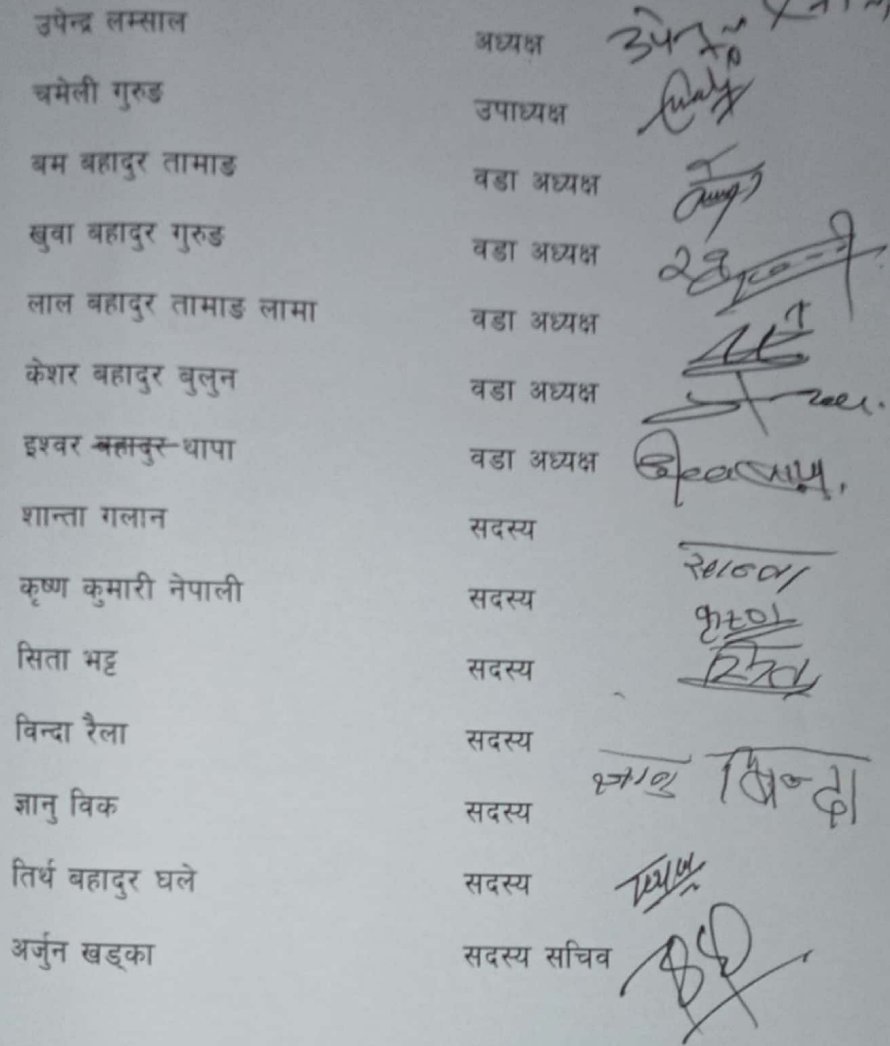 उपेन्द्र लम्साल अध्यक्ष उपेन्द्र
चमेली गुरुङ उपाध्यक्ष
बम बहादुर तामाङ वडा अध्यक्ष
खुवा बहादुर गुरुङ वडा अध्यक्ष
लाल बहादुर तामाङ लामा वडा अध्यक्ष
केशर बहादुर बुलुन वडा अध्यक्ष
इश्वर बहादुर थापा वडा अध्यक्ष
शान्ता गलान सदस्य
कृष्ण कुमारी नेपाली सदस्य कृष्ण
सिता भट्ट सदस्य सिता
विन्दा रैला सदस्य बिन्दा
ज्ञानु विक सदस्य
तिर्थ बहादुर घले सदस्य
अर्जुन खड्का सदस्य सचिव